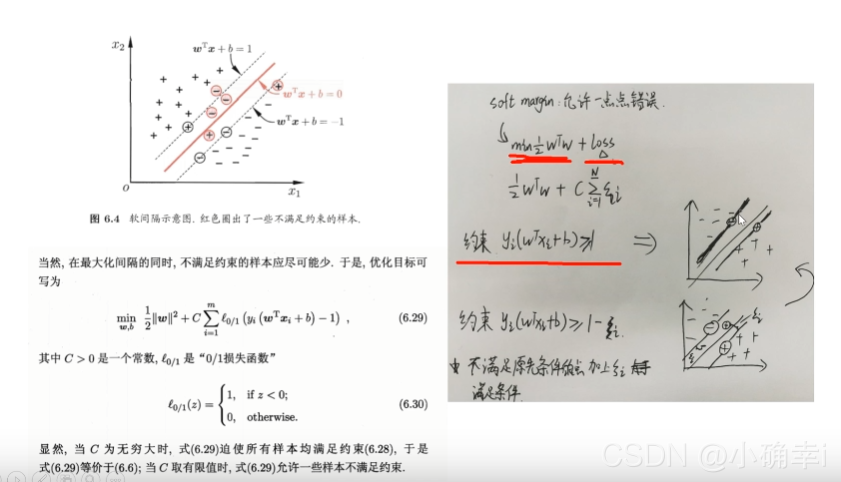 x₂
wᵀx + b = 1
wᵀx + b = 0
wᵀx + b = −1
O
x₁
图 6.4 软间隔示意图. 红色圈出了一些不满足约束的样本.
当然, 在最大化间隔的同时, 不满足约束的样本应尽可能少. 于是, 优化目标可
写为
min w,b ½‖w‖² + C ∑ᵢ₌₁ᵐ ℓ₀/₁ (yᵢ (wᵀxᵢ + b) − 1) , (6.29)
其中 C > 0 是一个常数, ℓ₀/₁ 是 “0/1损失函数”
ℓ₀/₁(z) = { 1, if z < 0; 0, otherwise. (6.30)
显然, 当 C 为无穷大时, 式(6.29)迫使所有样本均满足约束(6.28), 于是
式(6.29)等价于(6.6); 当 C 取有限值时, 式(6.29)允许一些样本不满足约束.
soft margin: 允许一点点错误.
min ½ wᵀw + loss
½ wᵀw + C ∑ᵢ₌₁ᴺ ξᵢ
约束 yᵢ(wᵀxᵢ+b) ≥ 1 ⇒
约束 yᵢ(wᵀxᵢ+b) ≥ 1 − ξᵢ
ξᵢ
不满足原先条件的点 加上 ξᵢ
满足条件
CSDN @小确幸i